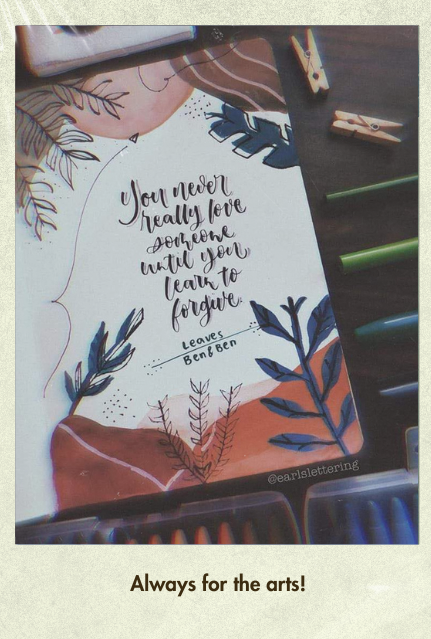 You never
really love
someone
until you
learn to
forgive.
Leaves
Ben&Ben
@earlslettering
Always for the arts!